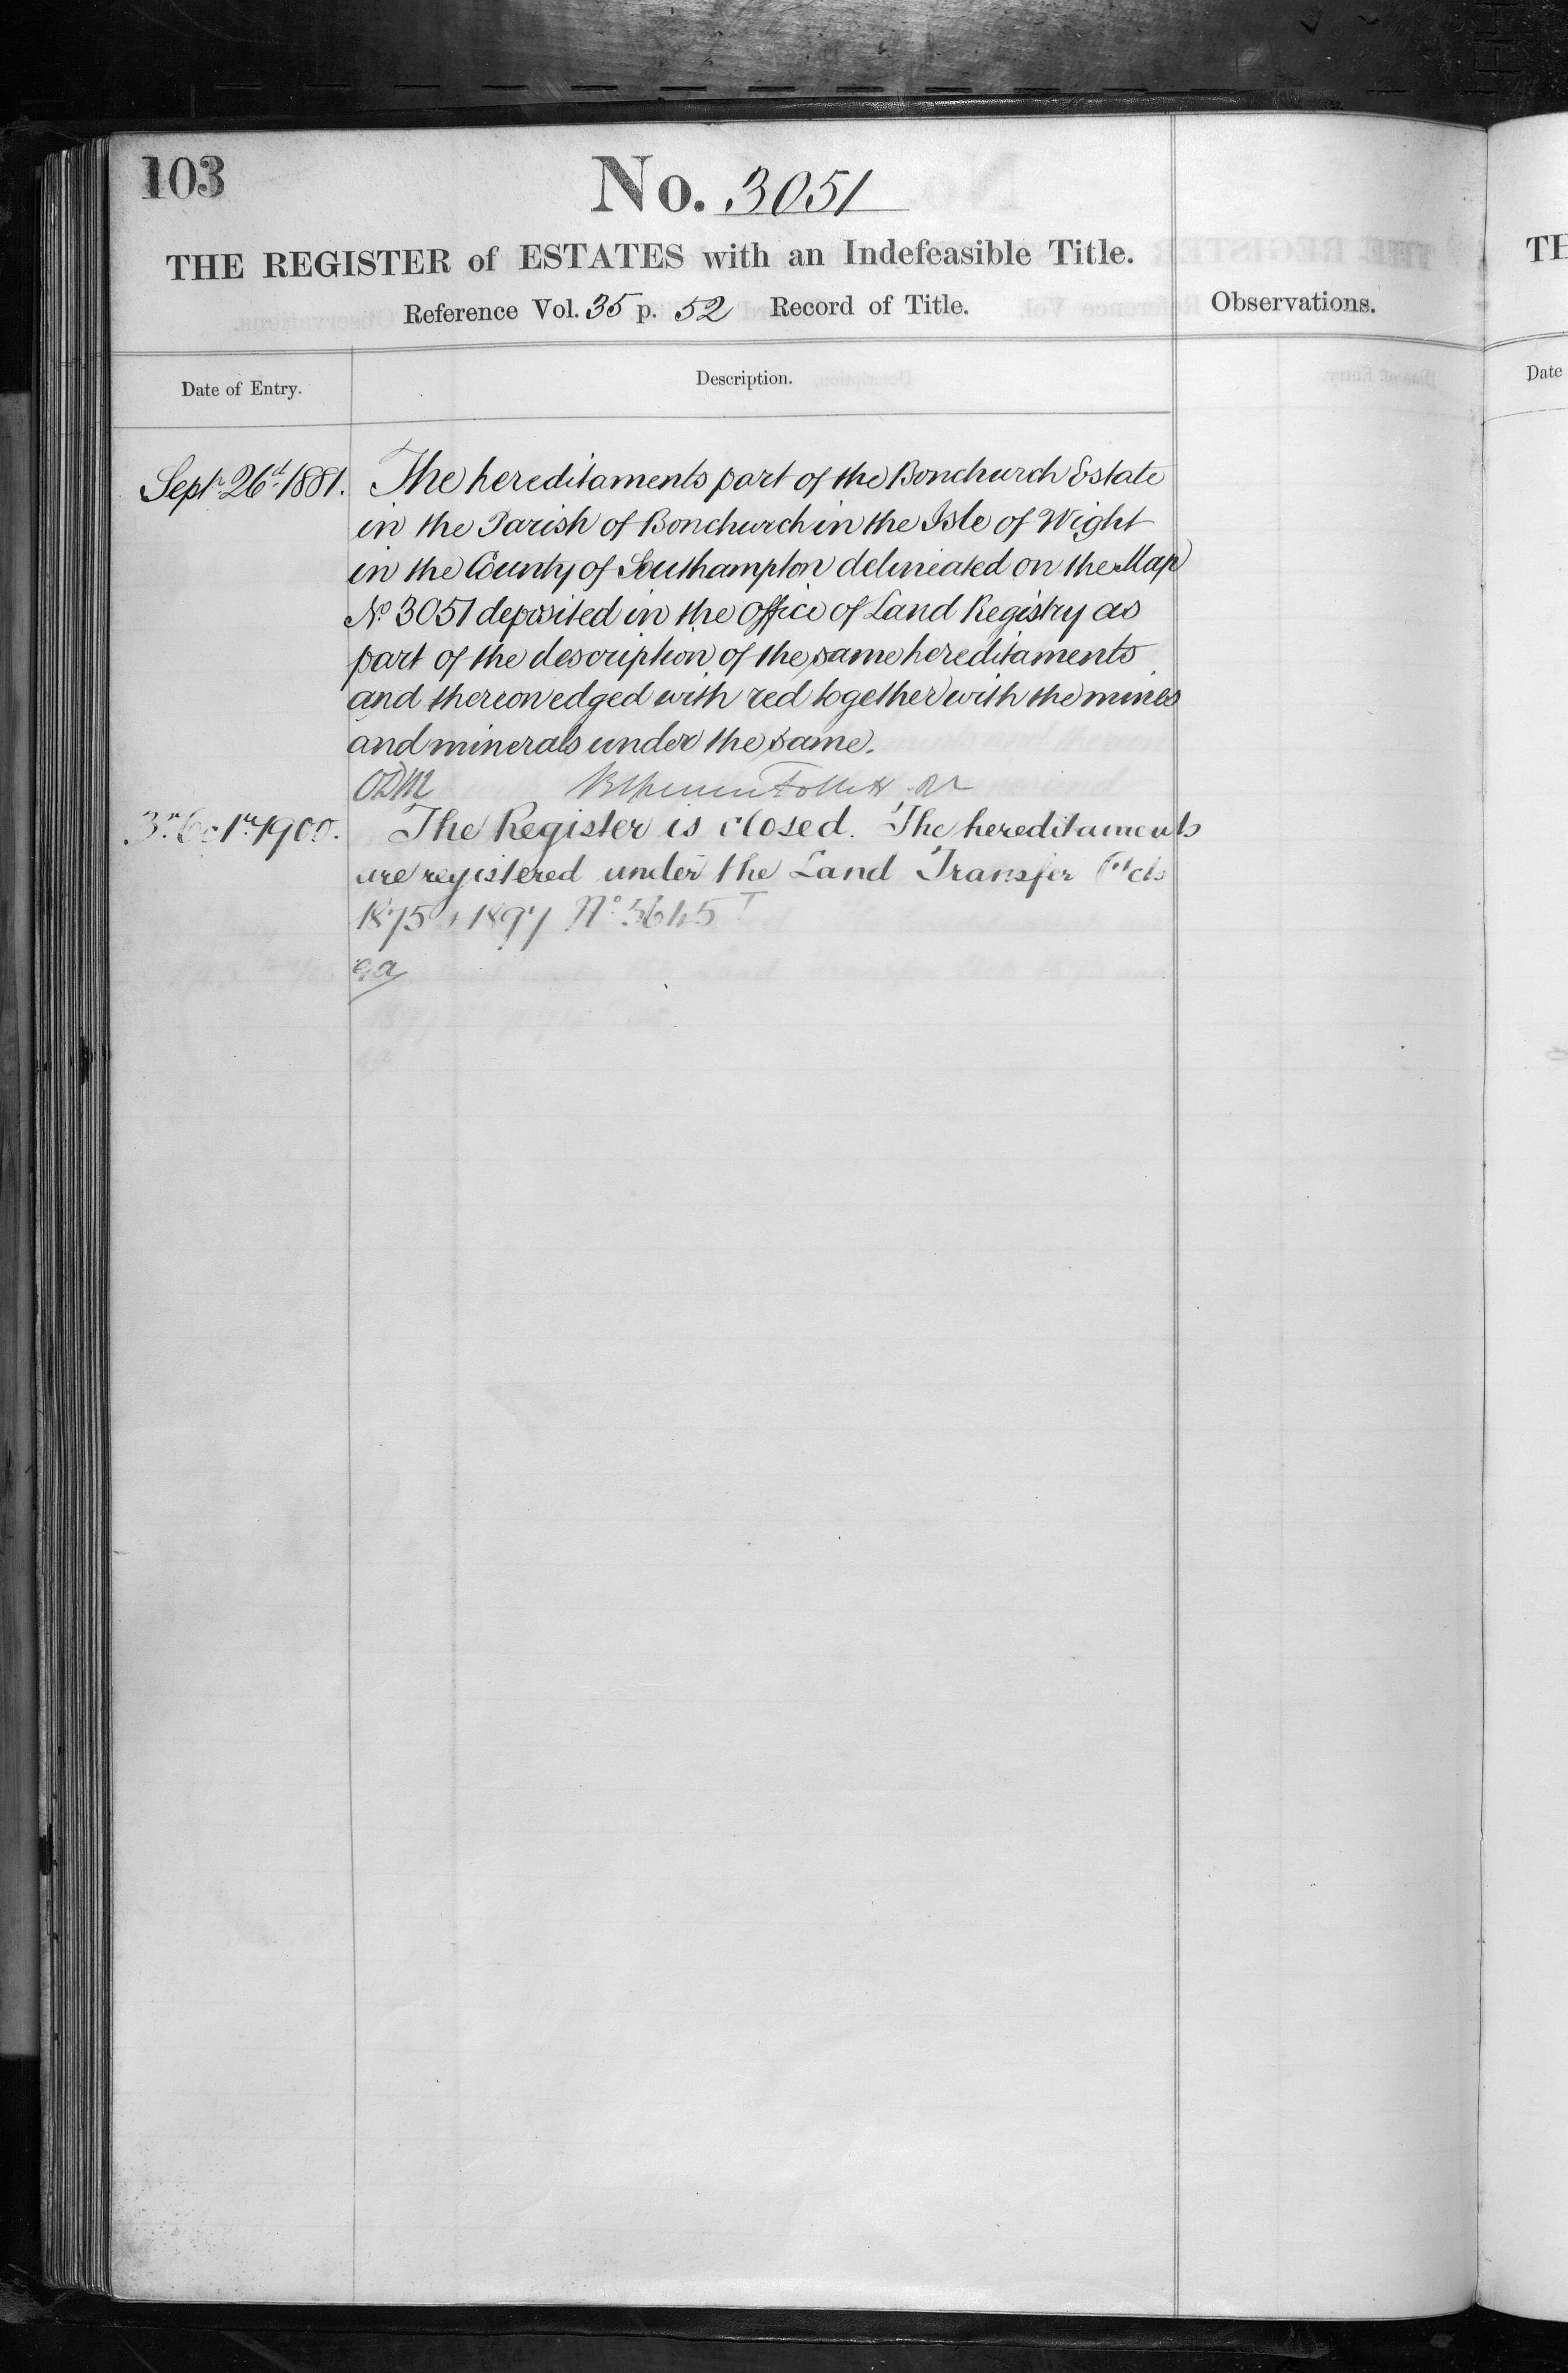 103
No. 3051
THE REGISTER of ESTATES with an Indefeasible Title.
Reference Vol. 35 p. 52 Record of Title.
Observations.
Date of Entry.
Description.
Sept. 26th 1881. The hereditaments part of the Bonchurch Estate
in the Parish of Bonchurch in the Isle of Wight
in the County of Southampton delineated on the Map
No. 3051 deposited in the office of Land Registry as
part of the description of the same hereditaments
and thereon edged with red together with the mines
and minerals under the same.
ODM Follett
1900. The Register is closed. The hereditaments
are registered under the Land Transfer Acts
1875 & 1897 No.
TH
Date